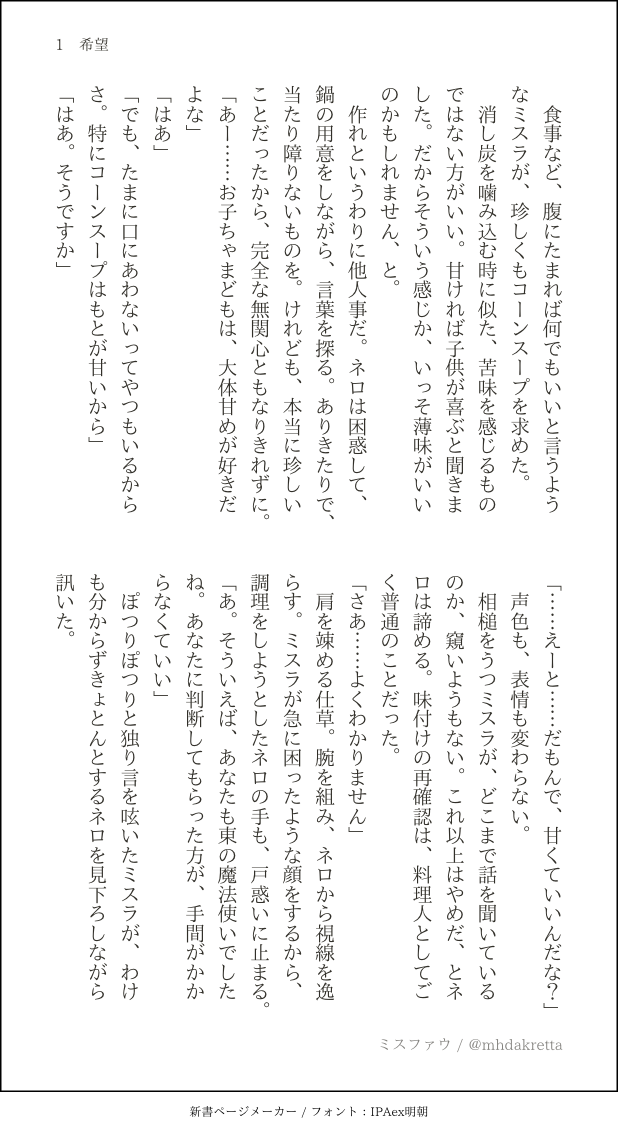 1　希望
　食事など、腹にたまれば何でもいいと言うよう
なミスラが、珍しくもコーンスープを求めた。
　消し炭を噛み込む時に似た、苦味を感じるもの
ではない方がいい。甘ければ子供が喜ぶと聞きま
した。だからそういう感じか、いっそ薄味がいい
のかもしれません、と。
　作れというわりに他人事だ。ネロは困惑して、
鍋の用意をしながら、言葉を探る。ありきたりで、
当たり障りないものを。けれども、本当に珍しい
ことだったから、完全な無関心ともなりきれずに。
「あー……お子ちゃまどもは、大体甘めが好きだ
よな」
「はあ」
「でも、たまに口にあわないってやつもいるから
さ。特にコーンスープはもとが甘いから」
「はあ。そうですか」
「……えーと……だもんで、甘くていいんだな？」
　声色も、表情も変わらない。
　相槌をうつミスラが、どこまで話を聞いている
のか、窺いようもない。これ以上はやめだ、とネ
ロは諦める。味付けの再確認は、料理人としてご
く普通のことだった。
「さあ……よくわかりません」
　肩を竦める仕草。腕を組み、ネロから視線を逸
らす。ミスラが急に困ったような顔をするから、
調理をしようとしたネロの手も、戸惑いに止まる。
「あ。そういえば、あなたも東の魔法使いでした
ね。あなたに判断してもらった方が、手間がかか
らなくていい」
　ぽつりぽつりと独り言を呟いたミスラが、わけ
も分からずきょとんとするネロを見下ろしながら
訊いた。
ミスファウ / @mhdakretta
新書ページメーカー / フォント：IPAex明朝